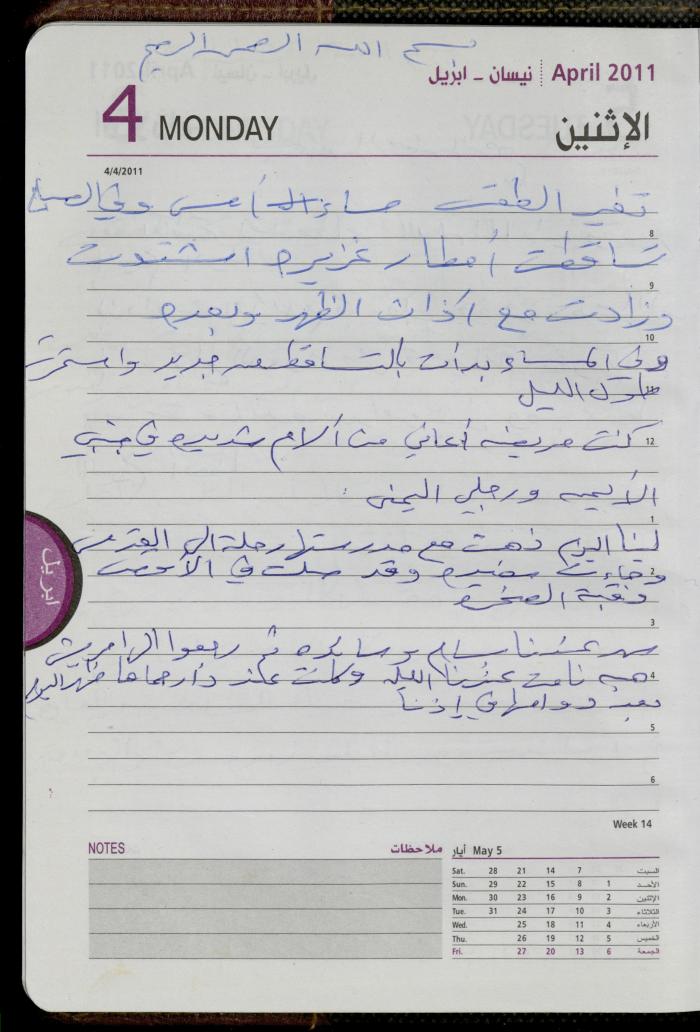 بسم الله الرحمن الرحيم
نيسان - ابريل April 2011
4 MONDAY الإثنين
4/4/2011
تغير الطقس مساء الأمس وفي الصباح
8
تساقطت أمطار غزيره اشتدت
9
وزادت مع اذان الظهر وبعده
10
وفي المساء بدات بالتساقط من جديد واستمرت
11
طوال الليل
12
كنت مريضه أعاني من آلام شديده في جنبي
الأيمن ورجلي اليمنى
1
لينا اليوم ذهبت مع مدرستها رحلة الى القدس
2
وجاءت سعيده وقد صلت في الأقصى
وقبة الصخره
3
سهر عندنا بسام وسائده ثم رجعوا الى
4
هبه نامت عندنا الليله وكانت عند دار حماها ظهر اليوم
بعد دوامها في إذنا
5
6
Week 14
ابريل
NOTES ملاحظات
أيار May 5
Sat. 28 21 14 7 السبت
Sun. 29 22 15 8 1 الأحد
Mon. 30 23 16 9 2 الإثنين
Tue. 31 24 17 10 3 الثلاثاء
Wed. 25 18 11 4 الأربعاء
Thu. 26 19 12 5 الخميس
Fri. 27 20 13 6 الجمعة